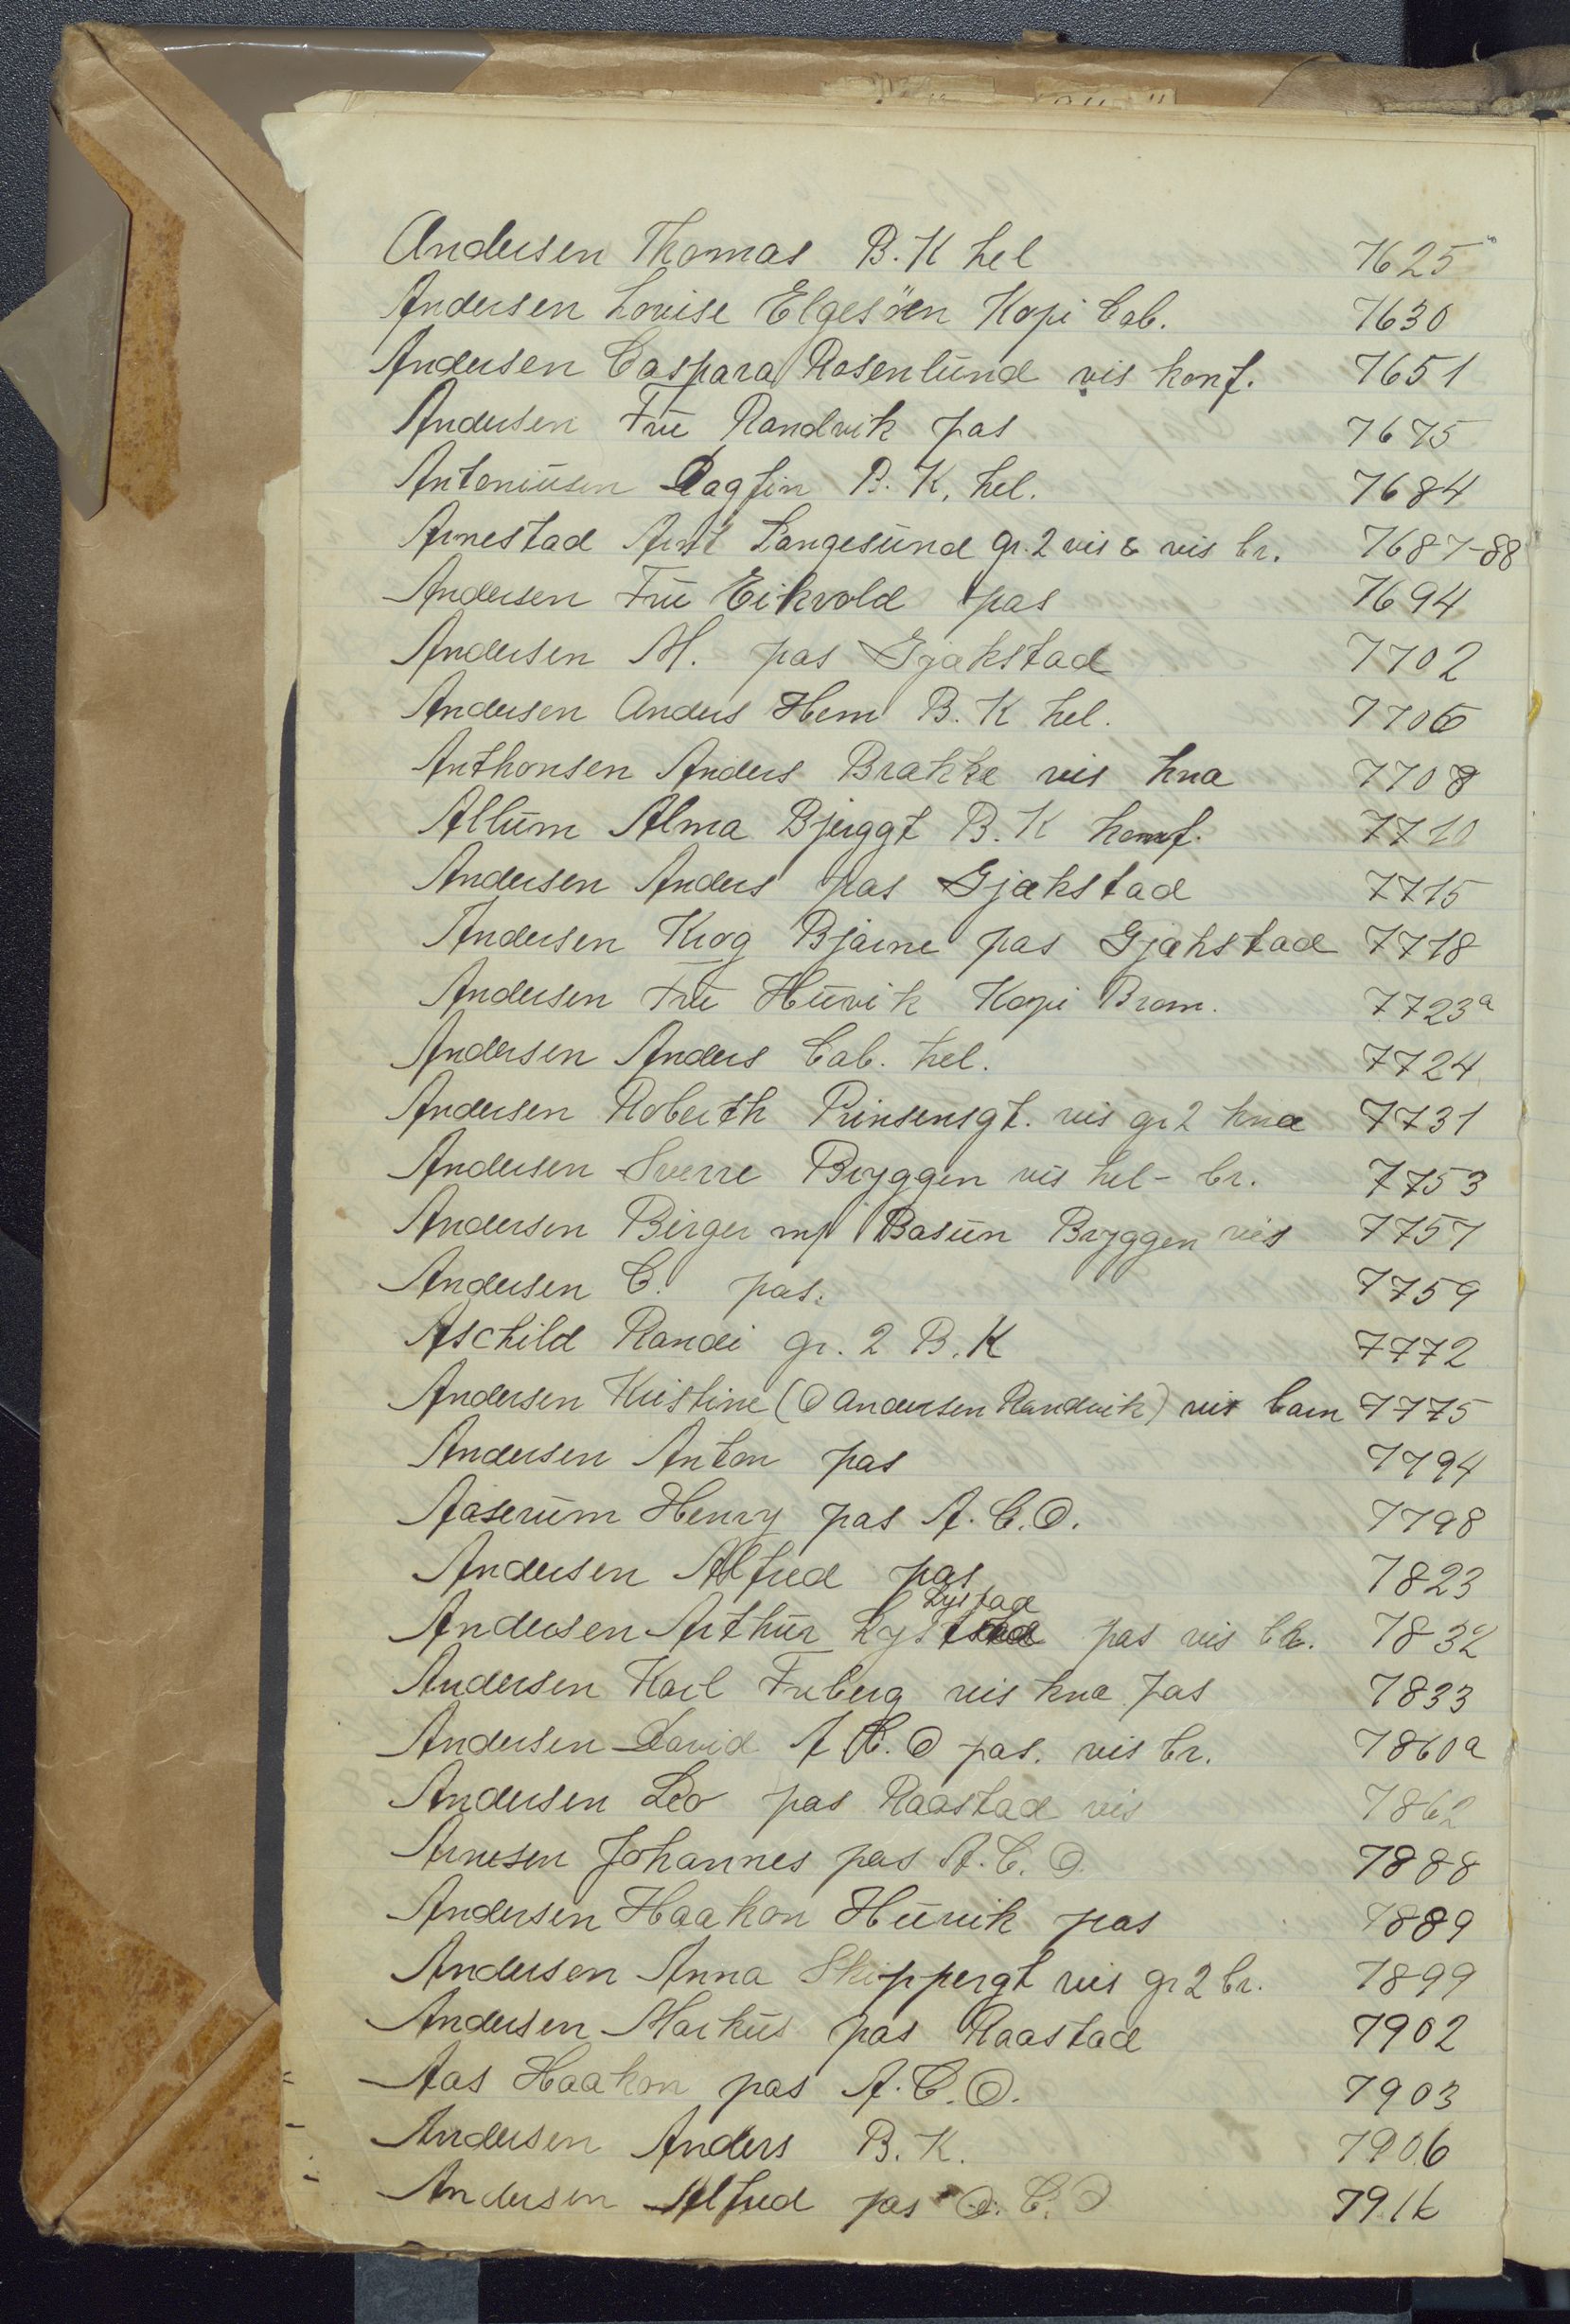 Andersen Thomas B. K hel 7625
Andersen Lovise Elgesöen Kopi Cab. 7630
Andersen Caspara Rosenlund vis konf. 7651
Andersen Fru Randvik pas 7675
Antoniusen Dagfin B. K. hel. 7684
Arnestad Arnt Langesund gr. 2 vis & vis br. 7687-88
Andersen Fru Eikvold pas 7694
Andersen M. pas Gjakstad 7702
Andersen Anders Hem B. K hel. 7706
Anthonsen Anders Brakke vis kna 7708
Allum Alma Bjerggt B. K konf. 7710
Andersen Anders pas Gjakstad 7715
Andersen Krog Bjarne pas Gjakstad 7718
Andersen Fru Huvik Kopi Brom. 7723a
Andersen Anders Cab. hel. 7724
Andersen Roberth Prinsensgt. vis gr 2 kna 7731
Andersen Sverre Bryggen vis hel - br. 7753
Andersen Birger m/ Basun Bryggen vis 7757
Andersen C. pas. 7759
Aschild Randi gr. 2 B. K 7772
Andersen Kristine (O Andersen Randvik) vis barn 7775
Andersen Anton pas 7794
Aaserum Henry pas A. C. O. 7798
Andersen Alfred pas 7823
Lystad
Andersen Arthur Lystad pas vis bk. 7832
Andersen Karl Fuberg vis kna pas 7833
Andersen David A C. O pas. vis br. 7860a
Andersen Leo pas Raastad vis 7862
Arnesen Johannes pas A. C. O. 7888
Andersen Haakon Huvik pas 7889
Andersen Anna Skippergt vis gr 2 br. 7899
Andersen Markus pas Raastad 7902
Aas Haakon pas A. C. O. 7903
Andersen Anders B. K. 7906
Andersen Alfred pas C. O 7916